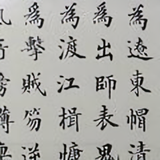 為遼東帽清
為出師表鬼
為渡江楫慷
為擊賊笏逆